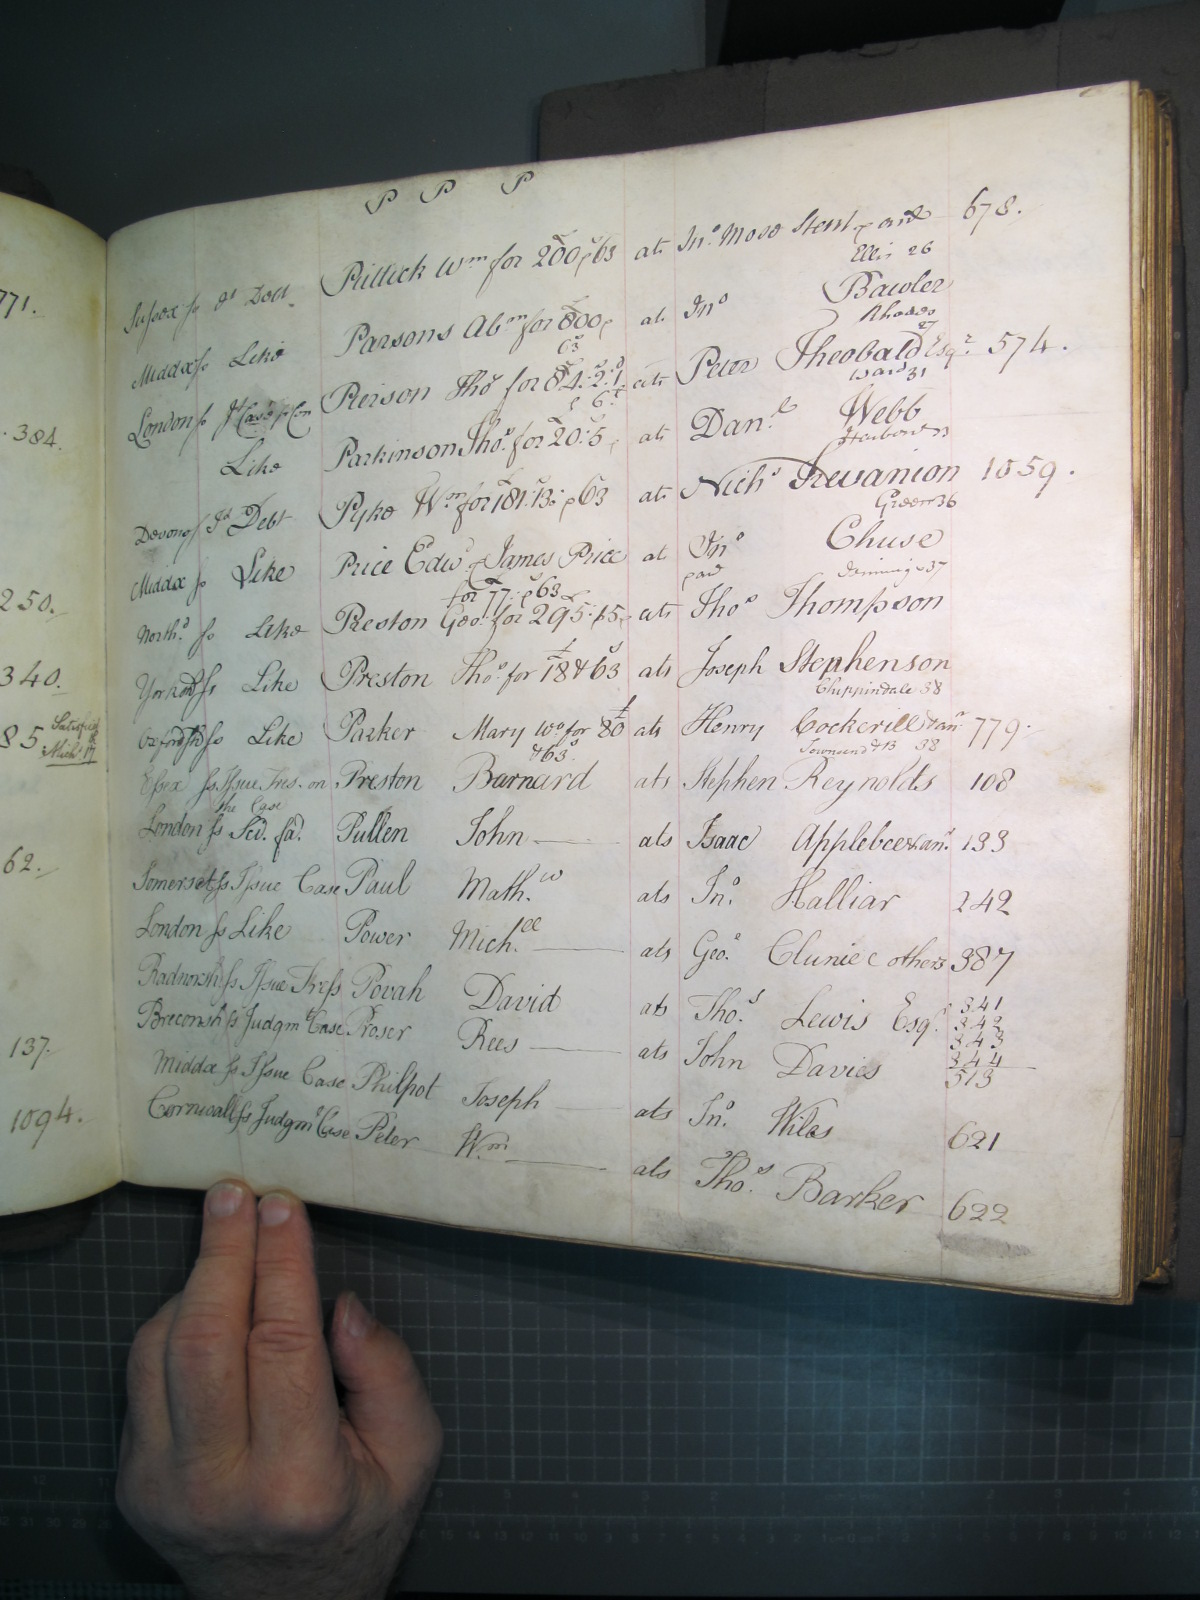 P P P
Sussex ss Jt Debt Pittick Wm for 200 p 63 ats Jno Mose Stent p and 678.
Ellis 26
Middx ss Like Parsons Abm for 800 p ats Jno Bawler
63
Rhodes 27
London ss Jt Case p Con Pierson Thos for 84:2:1 ats Peter Theobald Esqr 574.
& 6d
Ward 31
Like Parkinson Thos for 20:5 p ats Danl Webb
Devon ss Jt Debt Pyke Wm for 181:13: p 63 ats Nichs Trevanion 1059.
Green 36
Middx ss Like Price Edwd & James Price at Jno Chuse
for 77: p 63
pad Jennings 37
North.d ss Like Preston Geo. for 295:15 ats Thos Thompson
Yorksh ss Like Preston Thos for 18 & 63 ats Joseph Stephenson
Chippindale 38
Oxfordsh ss Like Parker Mary Wo for 80 ats Henry Cockerill & anr 779.
& 63s
Townsend 38
Essex ss Issue Tres. on Preston Barnard ats Stephen Reynolds 108
the Case
London ss Sci. fa. Pullen John ats Isaac Applebee & anr 133
Somerset ss Issue Case Paul Math.w ats Jno. Halliar 242
London ss Like Power Mich.ll ats Geo. Clunie & others 387
Radnorsh ss Issue Tress Povah David ats Thos. Lewis Esqr. 341
342
343
344
Breconsh ss Judgmt Case Proser Rees ats John Davies 513
Middx ss Issue Case Philpot Joseph ats Jno. Wiles 621
Cornwall ss Judgmt Case Peter Wm ats Thos. Barker 622
771.
384.
250.
340.
85 Satisfied
Michs 17
62.
137.
1094.